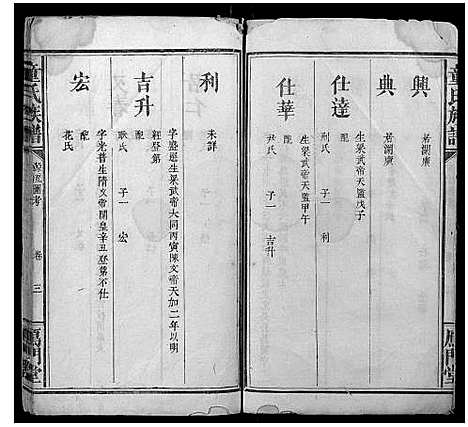 童氏族譜
雁門堂
興
居湖廣
典
居湖廣
仕達
生梁武帝天監戊子
配
刑氏 子一 利
仕華
生梁武帝天監甲午
配
尹氏 子一 吉升
利
未詳
吉升
字盛遜生梁武帝大同丙寅陳文帝天加二年以明
經登第
配
耿氏 子一 宏
宏
字光普生隋文帝開皇辛丑登第不仕
配
花氏
童氏族譜
源流圖考
卷
三
雁門堂